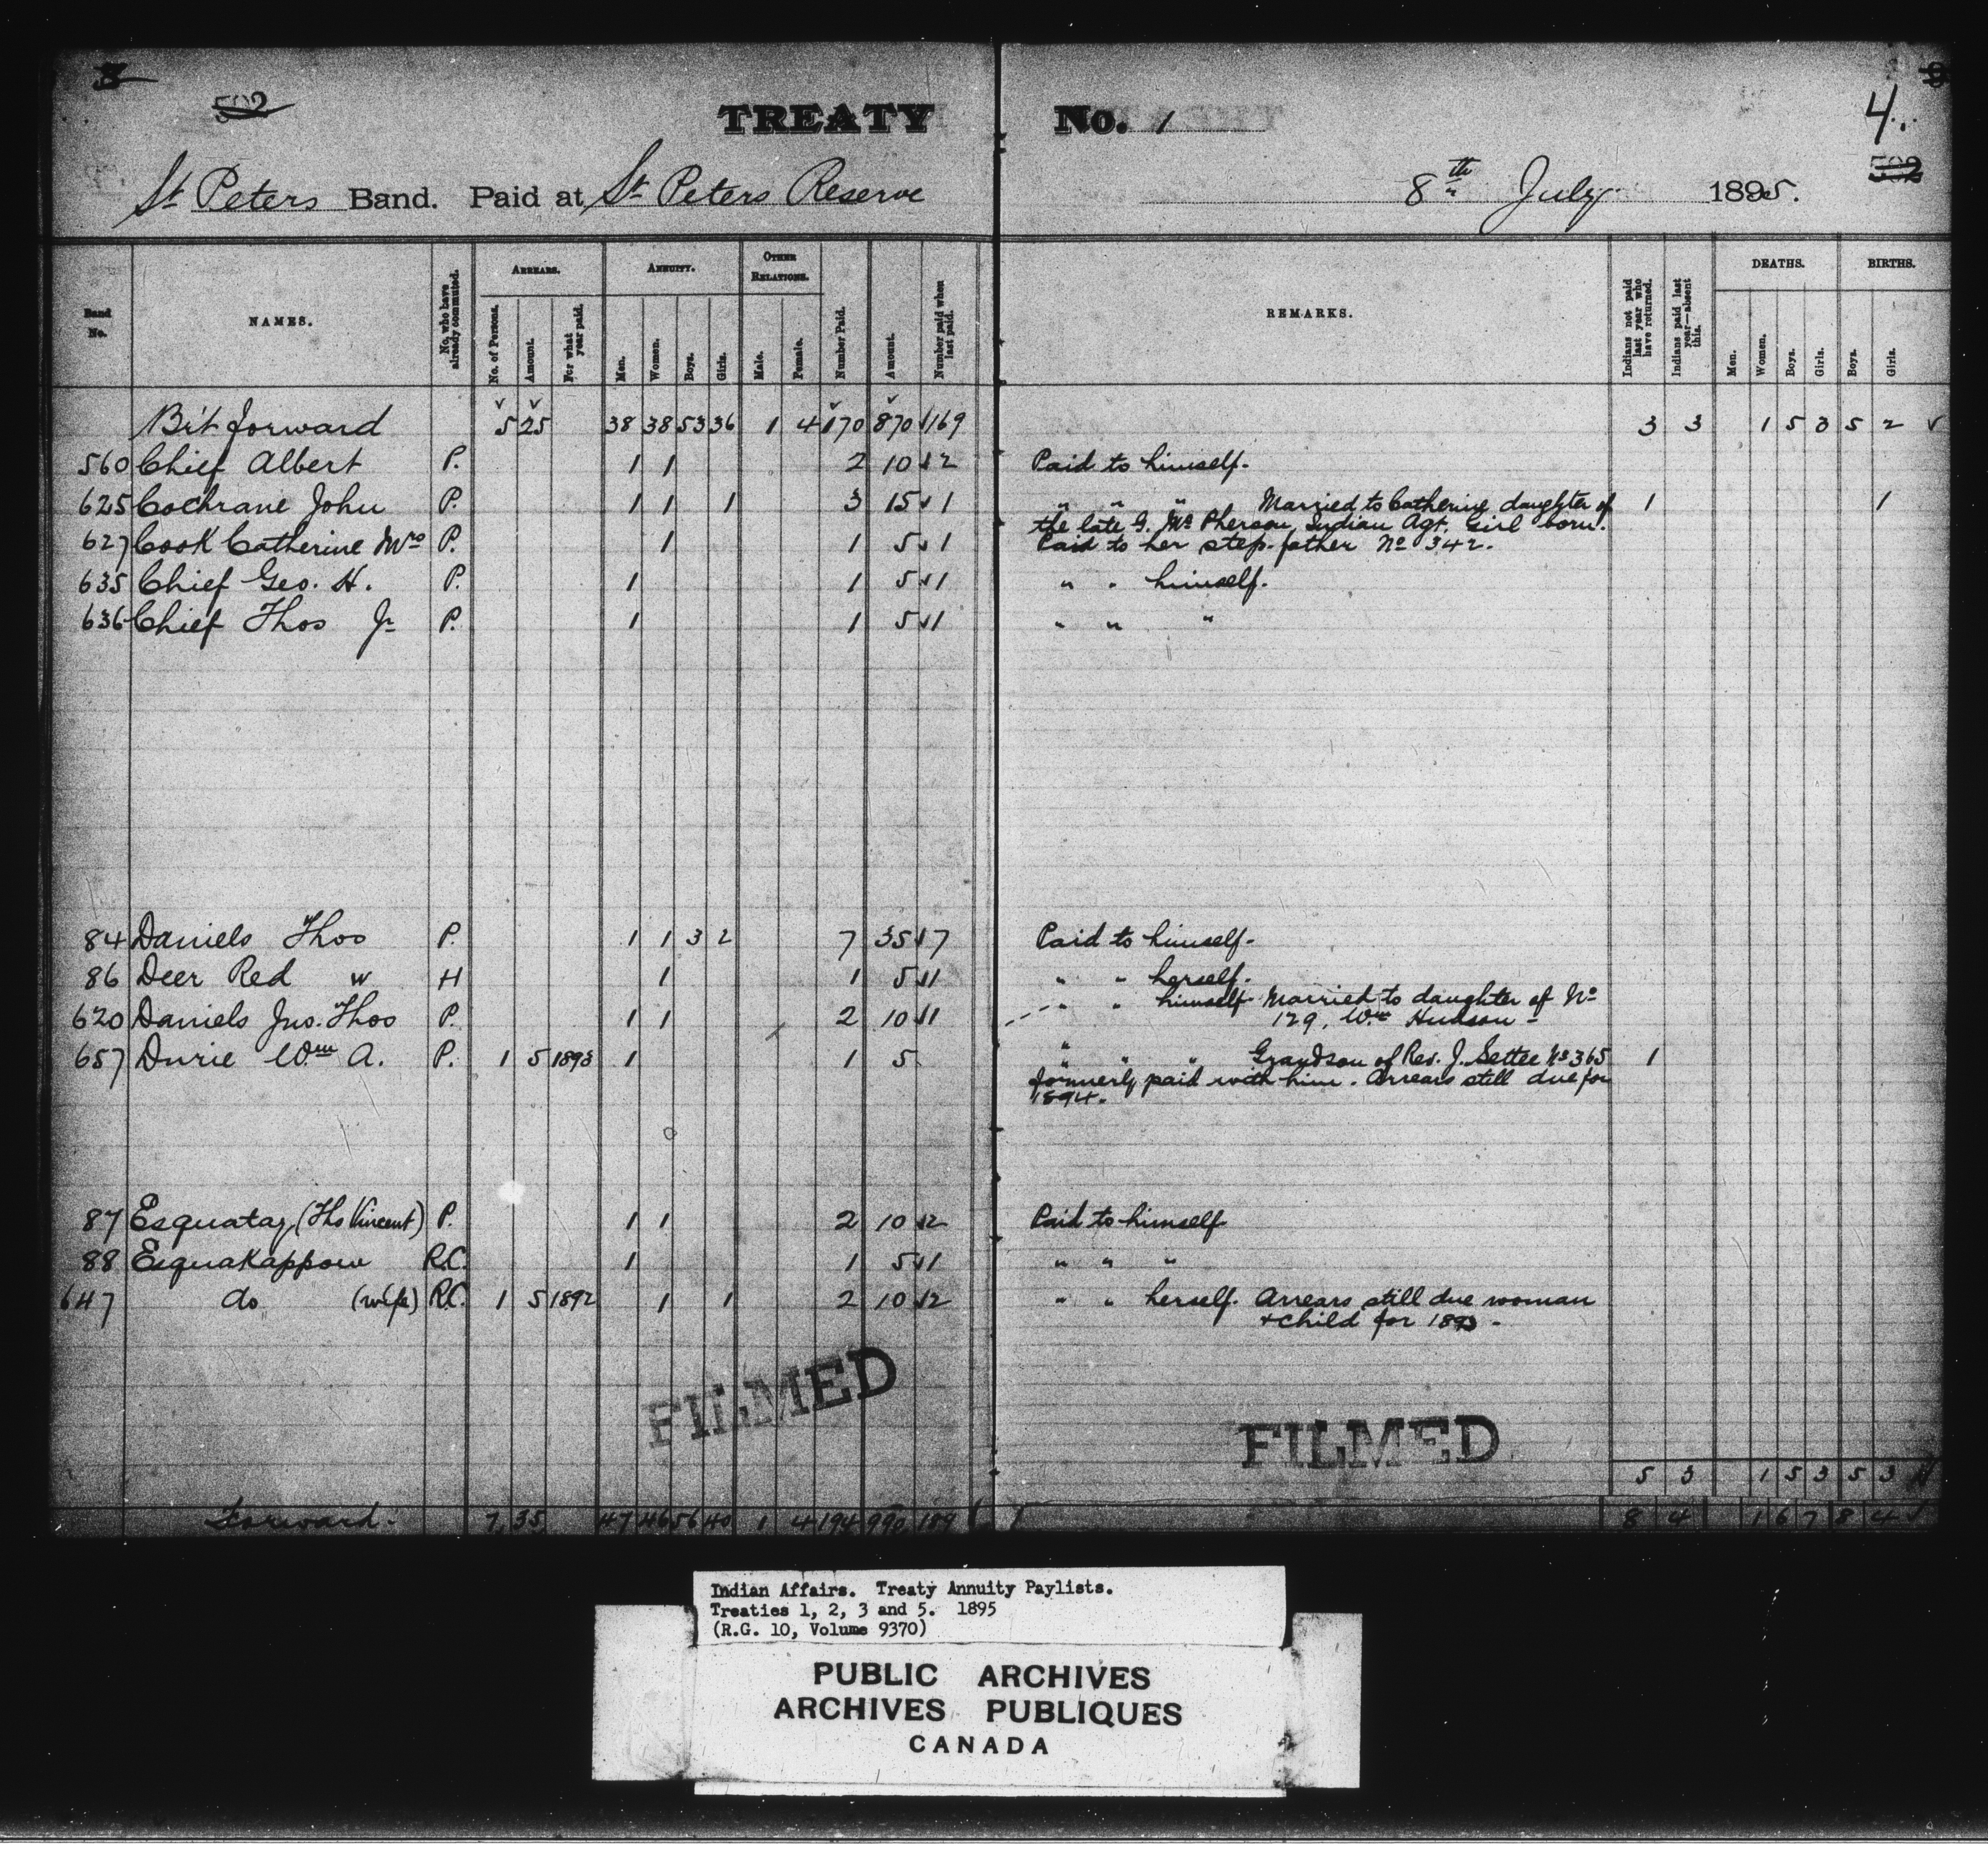 3
502
TREATY No. 1
4.
502
St Peters Band. Paid at St Peters Reserve 8th July 1895.
Band No. NAMES. No. who have already commuted. ARREARS. No. of Persons. Amount. For what year paid. ANNUITY. Men. Women. Boys. Girls. OTHER RELATIONS. Male. Female. Number Paid. Amount. Number paid when last paid. REMARKS. Indians not paid last year who have returned. Indians paid last year—absent this. DEATHS. Men. Women. Boys. Girls. BIRTHS. Boys. Girls.
Bṙt forward 5 25 38 38 53 36 1 4 170 870 169 3 3 1 5 3 5 2
560 Chief Albert P. 1 1 2 10 2 Paid to himself.
625 Cochrane John P. 1 1 1 3 15 1 " " " Married to Catherine daughter of 1 1
the late G. Mc Pherson, Indian Agt. Girl born.
627 Cook Catherine Mrs P. 1 1 5 1 Paid to her step-father No 342.
635 Chief Geo. H. P. 1 1 5 1 " " himself.
636 Chief Thos Jr P. 1 1 5 1 " " "
84 Daniels Thos P. 1 1 3 2 7 35 7 Paid to himself.
86 Deer Red w H 1 1 5 1 " " herself.
620 Daniels Jno. Thos P. 1 1 2 10 1 " " himself- Married to daughter of No
129, Wm Hudson -
657 Durie Wm A. P. 1 5 1893 1 1 5 " " " Grandson of Rev. J. Settee No 365 1
formerly paid with him. Arrears still due for
1894.
87 Esquatay (Ths Vincent) P. 1 1 2 10 2 Paid to himself
88 Esquakappow R.C. 1 1 5 1 " " "
647 do (wife) R.C. 1 5 1892 1 1 2 10 2 " " herself. Arrears still due woman
+ child for 1893 -
FILMED
FILMED
5 3 1 5 3 5 3
Forward- 7 35 47 46 56 40 1 4 194 990 189 8 4 1 6 7 8 4
Indian Affairs. Treaty Annuity Paylists.
Treaties 1, 2, 3 and 5. 1895
(R.G. 10, Volume 9370)
PUBLIC ARCHIVES
ARCHIVES PUBLIQUES
CANADA